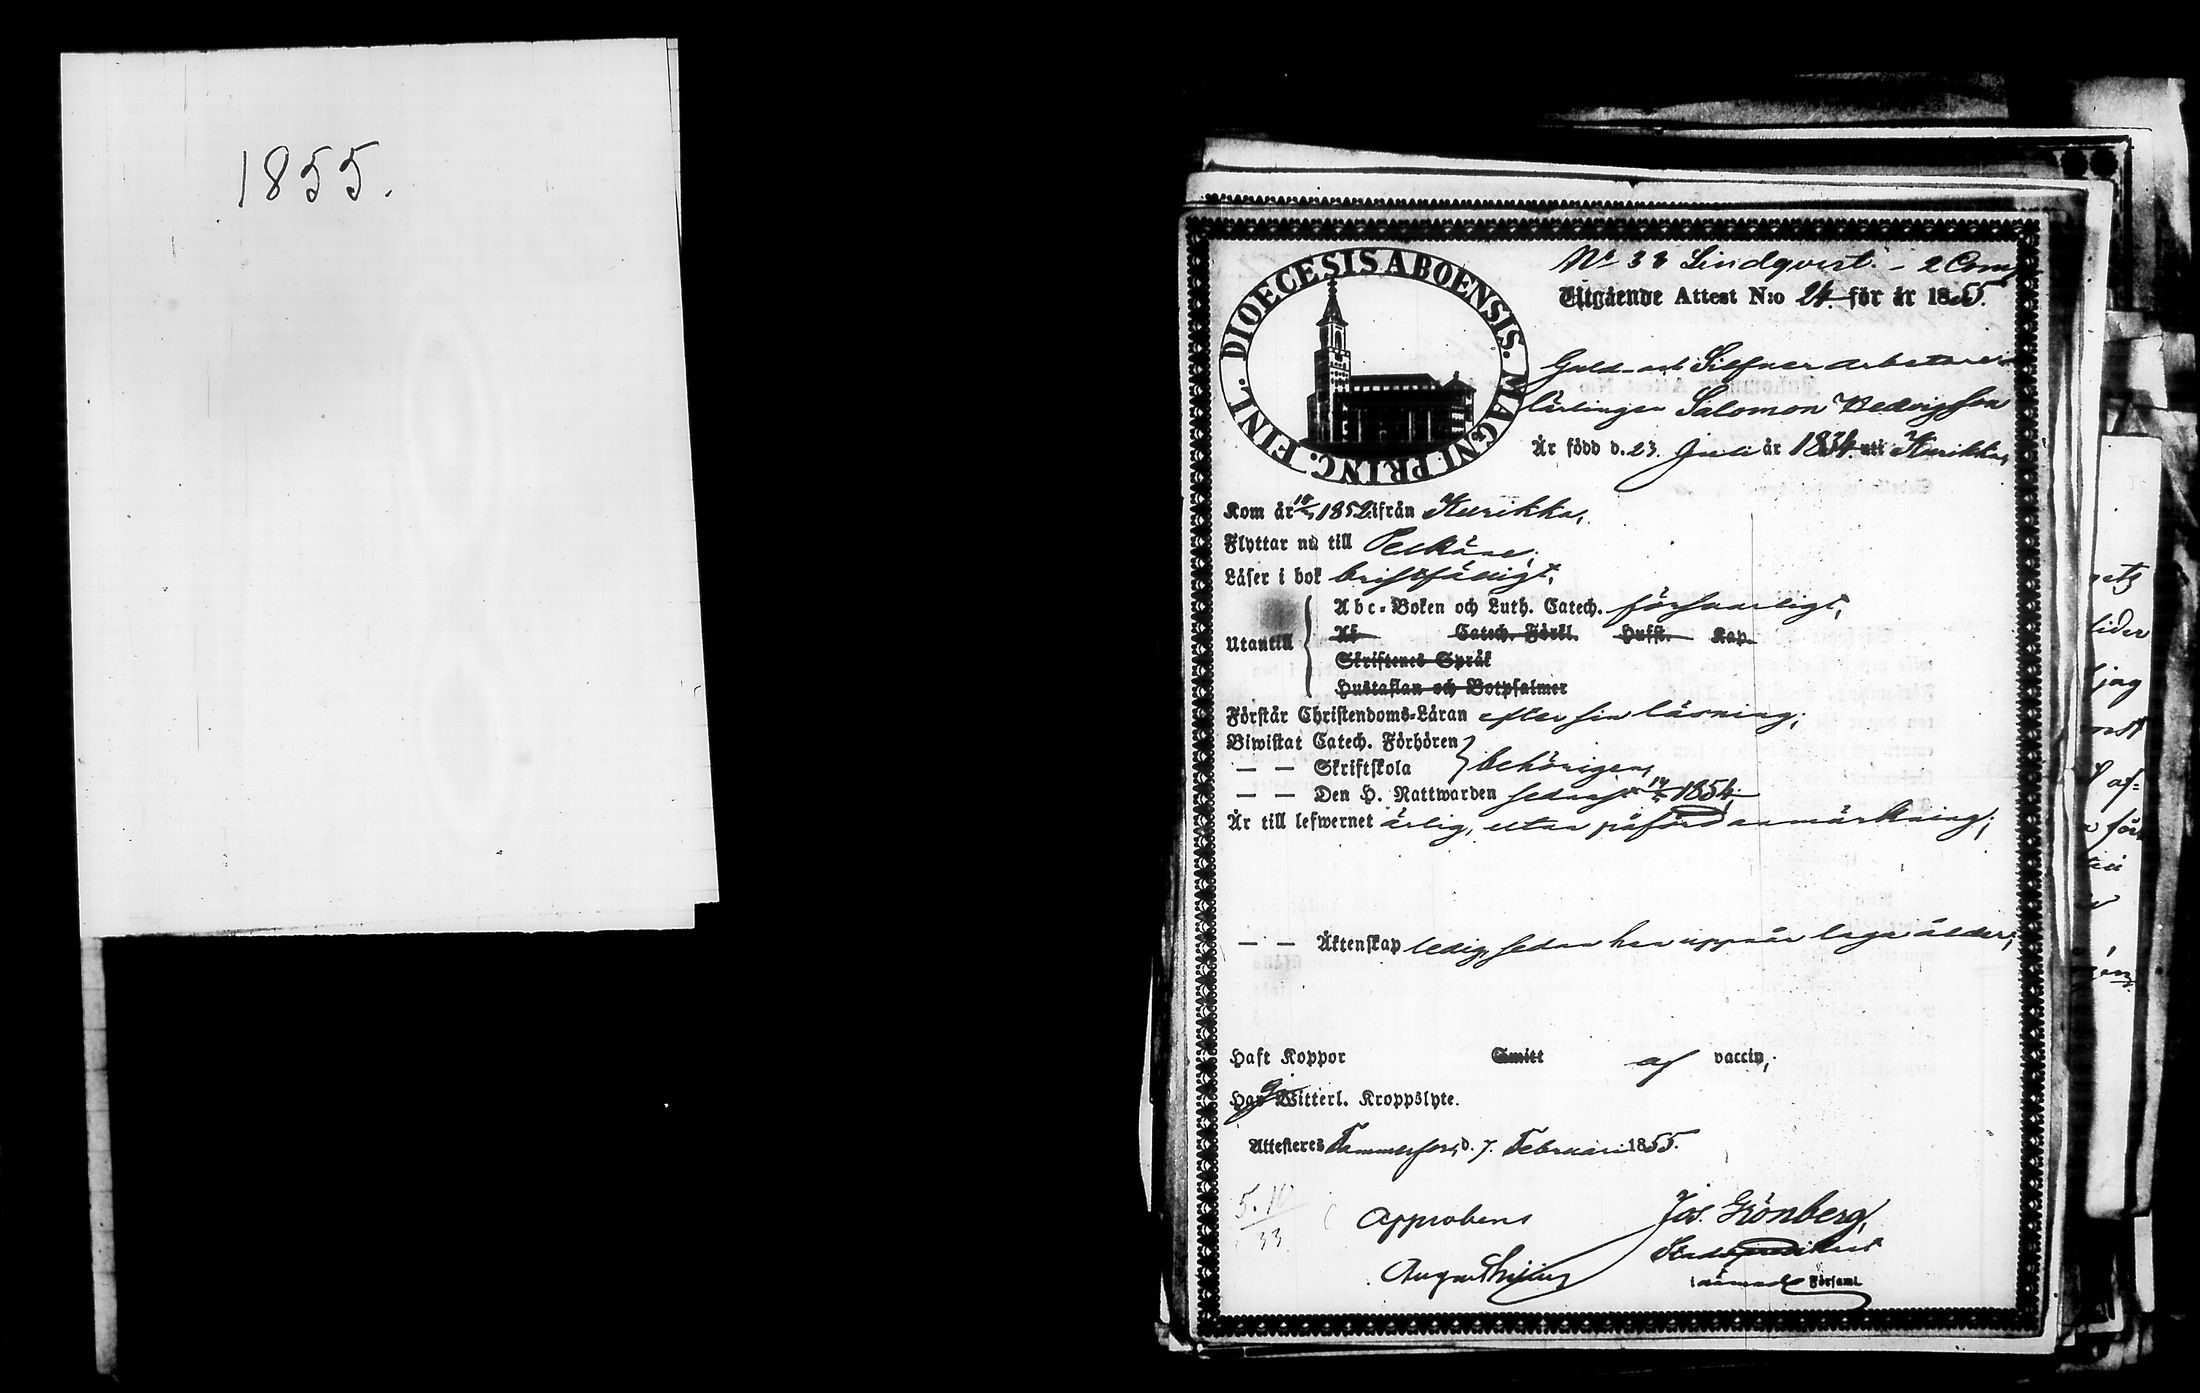 1855.
DIOECESIS ABOENSIS. MAGNI PRINC. FINL.
No 33 Lindqvist. - 2 Com
Utgående Attest N:o 24. för år 1855.
Guld- och Silfver arbetare
lärlingen Salomon Hedvigsson
Är född d. 23. Juli år 1834. uti Kurikka,
Kom år 1852. ifrån Kurikka,
Flyttar nu till Pelkäne;
Läser i bok bristfälligt,
Utantill
Abc-Boken och Luth. Catech. försvarligt,
Af Catech. Förkl. Hufst. Kap.
Skriftenes Språk
Hustaflan och Botpsalmer
Förstår Christendoms-Läran efter sin läsning;
Biwistat Catech. Förhören
— — Skriftskola behörigen,
— — Den H. Nattwarden sednast 1854;
Är till lefwernet ärlig, utan påförd anmärkning;
— — Äktenskap ledig, sedan han uppnår laga ålder;
Haft Koppor Smitt af vaccin;
Har Ej Witterl. Kroppslyte.
Attesteres Tammerfors, d. 7. Februari 1855.
5.10
33
Approbens
Jos. Grönberg,
Stadspredikant
i nämnde Församl.